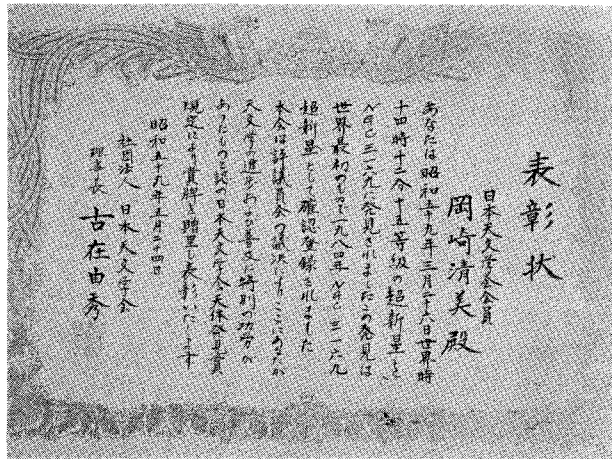 表彰状
日本天文学会会員
岡崎清美殿
あなたは昭和五十九年三月二十六日世界時
十四時十二分十五等級の超新星を
NGC三一六九に発見されましたこの発見は
世界最初のもので一九八四年NGC三一六九
超新星として確認登録されました
本会は評議員会の議決によりここにあなたが
天文学の進歩および普及に特別の功労が
あったものと認め日本天文学会天体発見賞
規定により賞牌を贈呈し表彰いたします
昭和五十九年五月二十四日
社団法人 日本天文学会
理事長 古在由秀